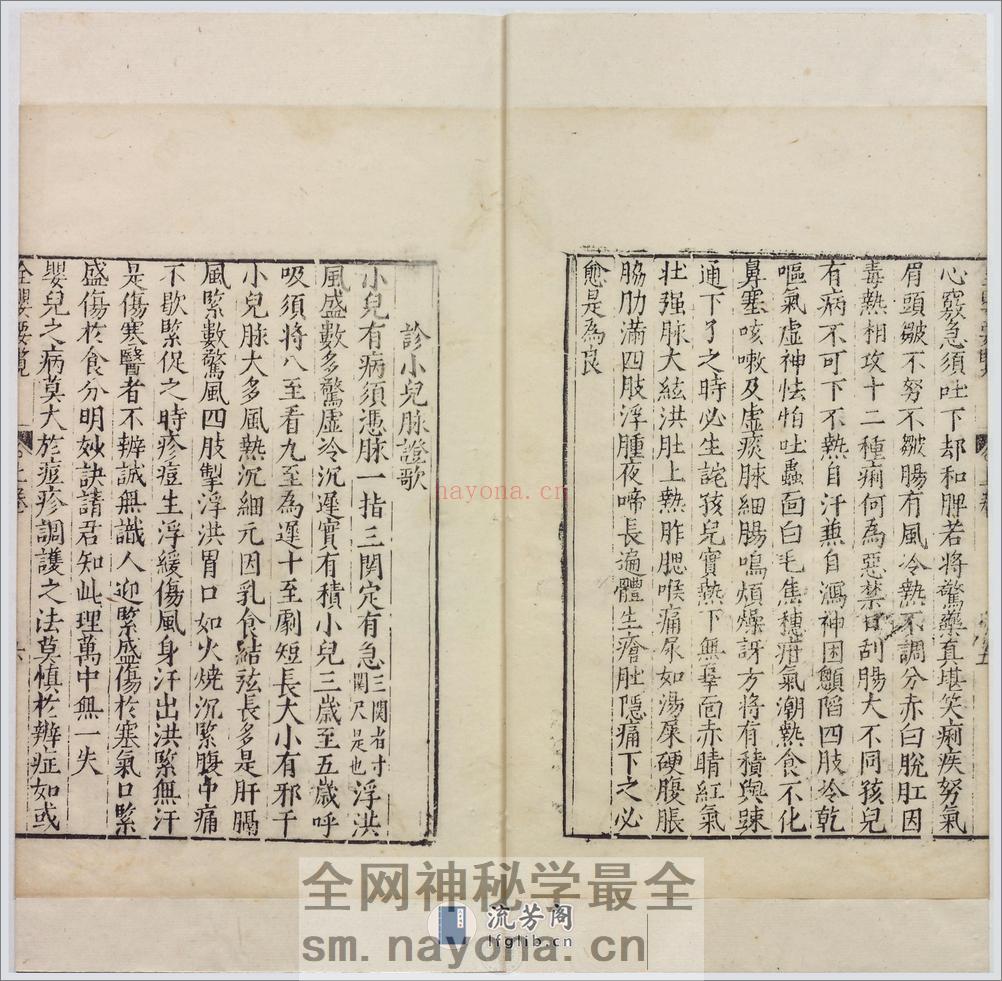 心竅急須吐下却和脾若將驚藥直堪笑痢疾努氣
眉頭皺不努不皺腸有風冷熱不調分赤白脫肛因
毒熱相攻十二種痢何為惡禁口刮腸大不同孩兒
有病不可下不熱自汗兼自瀉神困顖陷四肢冷乾
嘔氣虛神怯怕吐蟲面白毛焦穗疳氣潮熱食不化
鼻塞咳嗽及虛痰脉細腸鳴煩燥訝方將有積與踈
通下了之時必生詫孩兒實熱下無辜面赤睛紅氣
壯强脉大絃洪肚上熱胙腮喉痛尿如湯屎硬腹脹
脇肋滿四肢浮腫夜啼長遍體生瘡肚隱痛下之必
愈是為良
診小兒脉證歌
小兒有病須憑脉一指三関定有急三関者寸関尺是也浮洪
風盛數多驚虛冷沉遲實有積小兒三歲至五歲呼
吸須將八至看九至為遲十至劇短長大小有邪干
小兒脉大多風熱沉細元因乳食結弦長多是肝膈
風緊數驚風四肢掣浮洪胃口如火燒沉緊腹中痛
不歇緊促之時疹痘生浮緩傷風身汗出洪緊無汗
是傷寒醫者不辨誠無識人迎緊盛傷於寒氣口緊
盛傷於食分明妙訣請君知此理萬中無一失
嬰兒之病莫大於痘疹調護之法莫慎於辨症如或
全嬰要覽
上卷
六
hayona.cn
全网神秘学最全
流芳阁
lfglib.cn
sm.nayona.cn